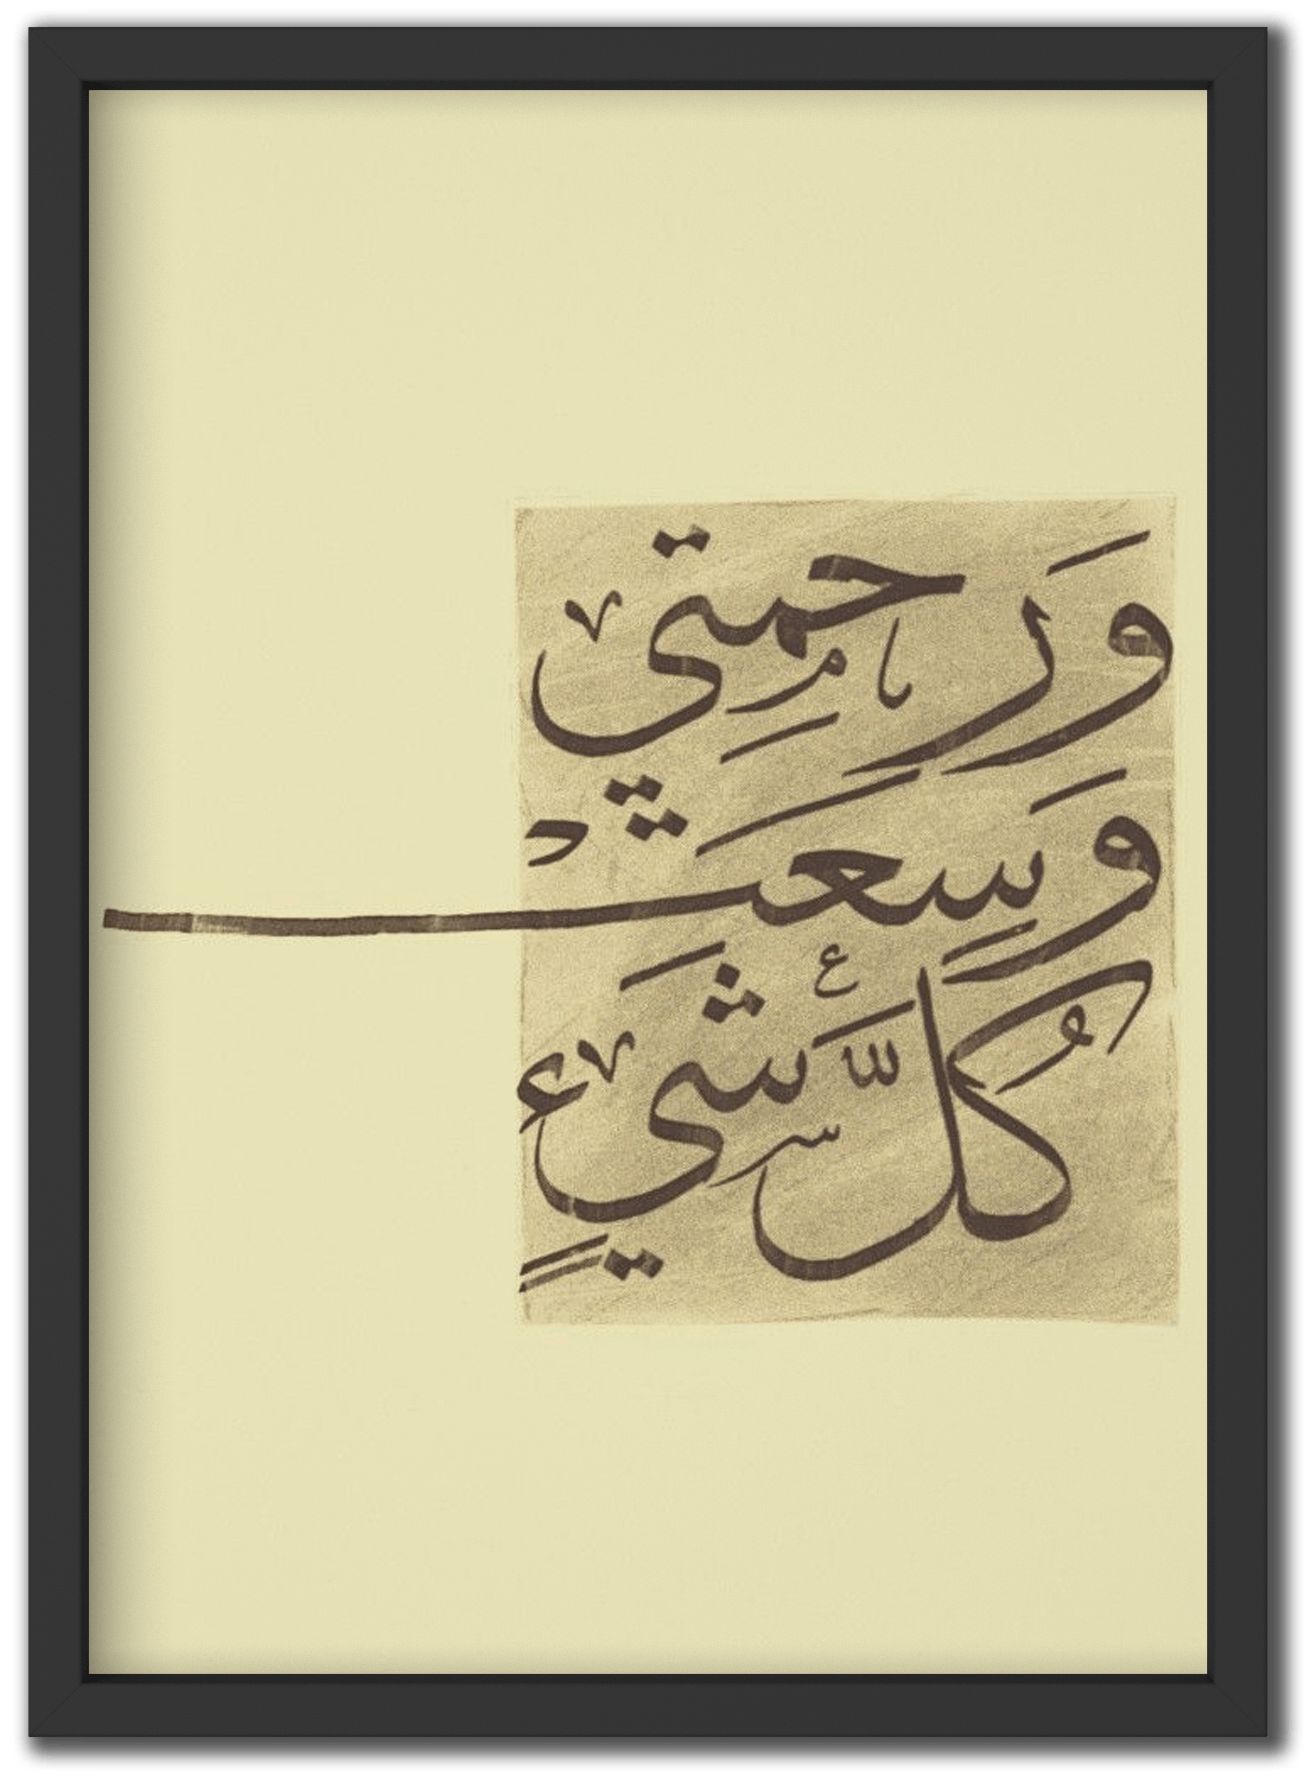 وَرَحمِتي
وَسِعَت
كُلَّ شَيءٍ